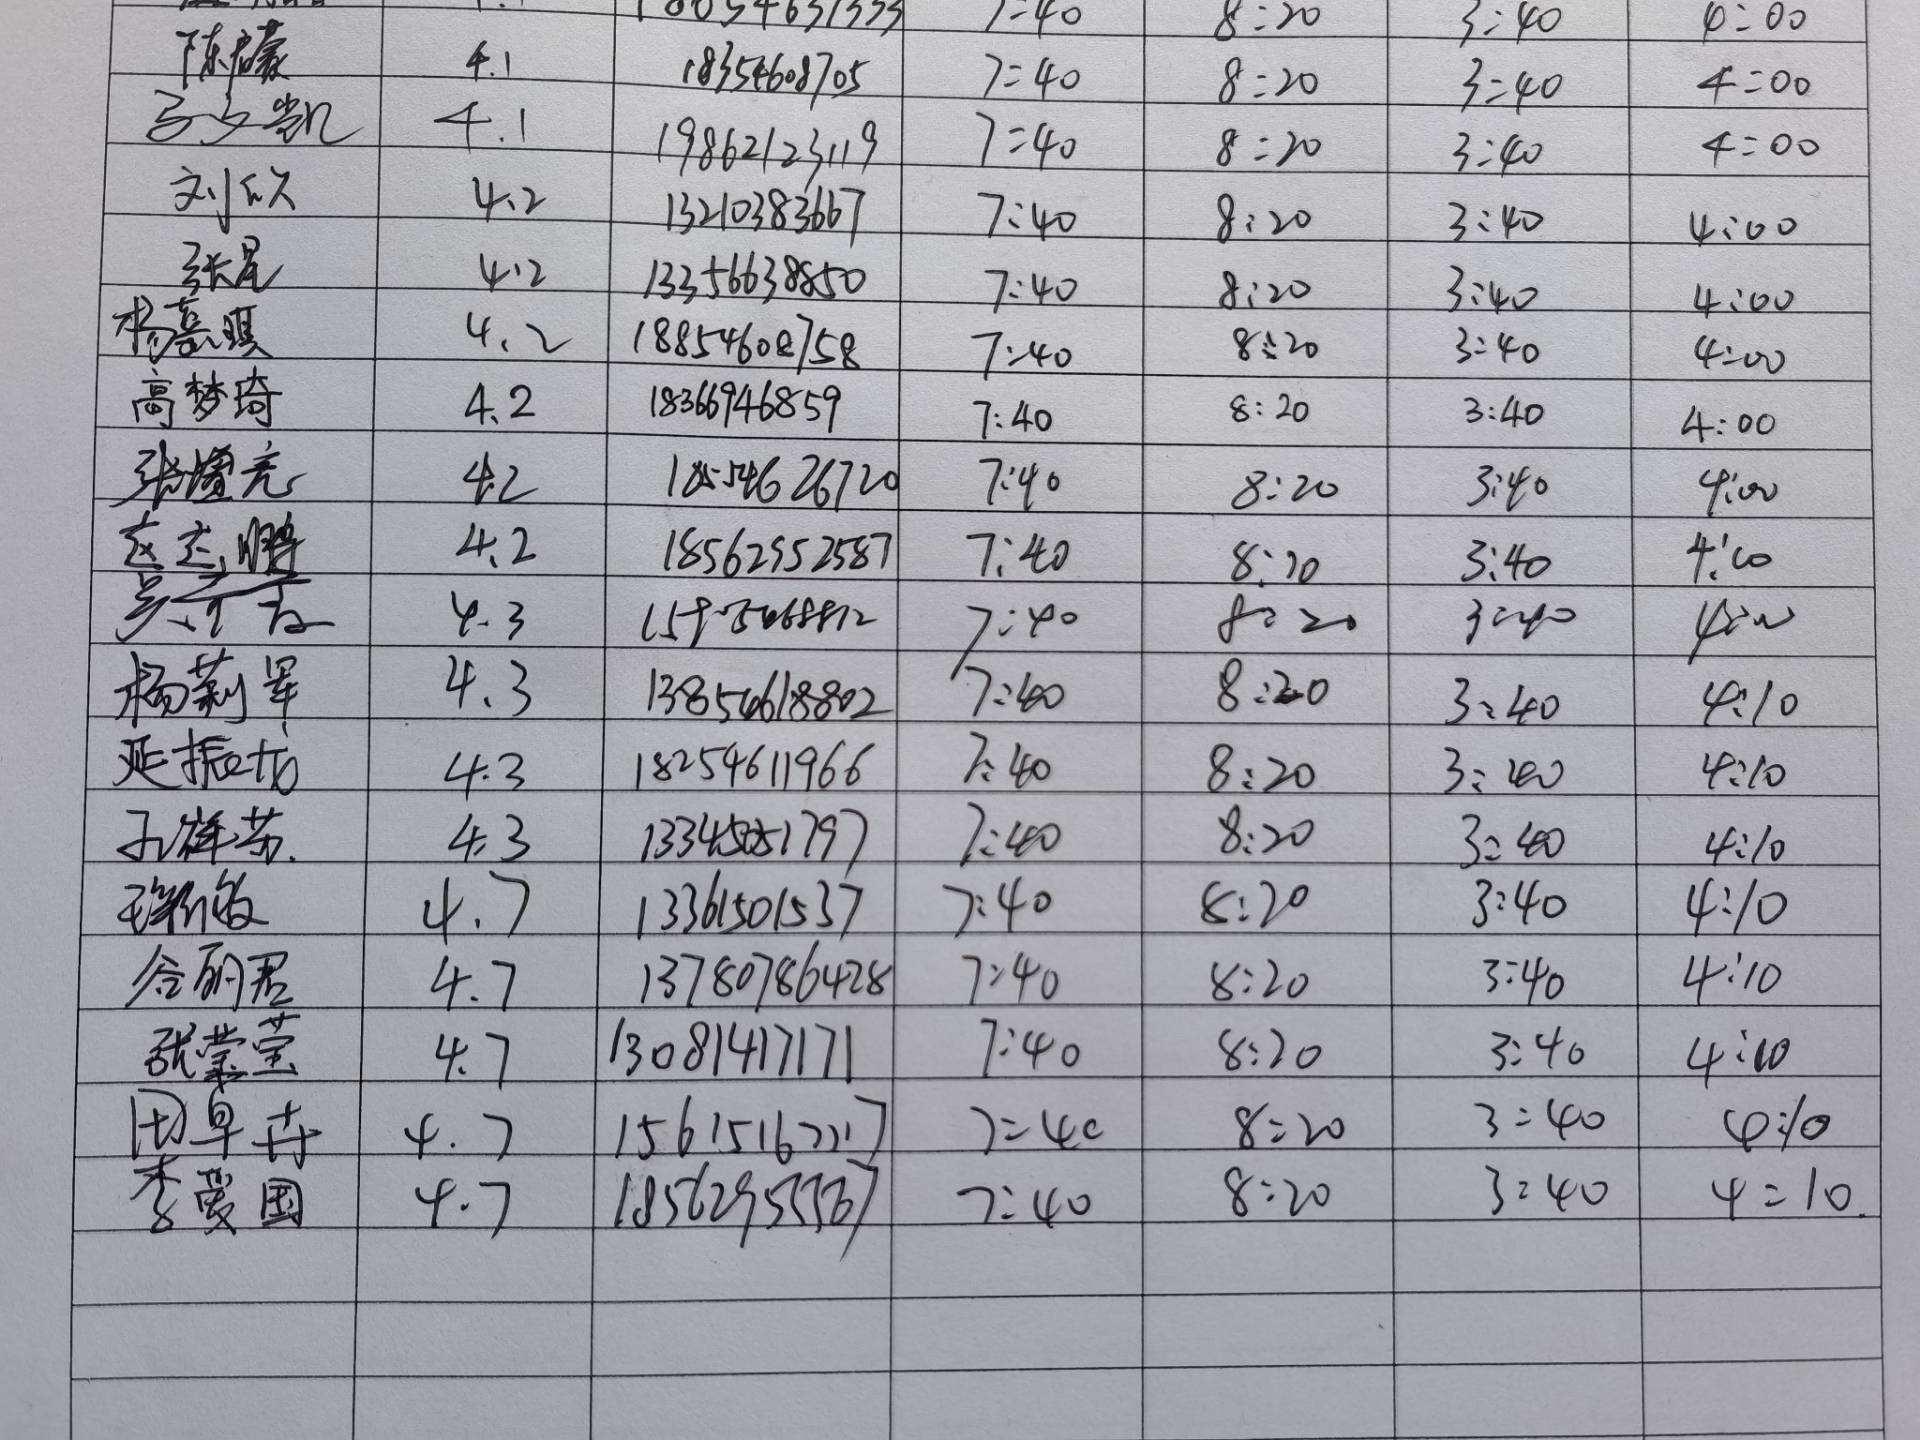 7:40 8:20 3:40 4:00
陈启豪 4.1 18354608705 7:40 8:20 3:40 4:00
4.1 19862123119 7:40 8:20 3:40 4:00
刘欣 4.2 13210383667 7:40 8:20 3:40 4:00
张星 4.2 13356638850 7:40 8:20 3:40 4:00
杨嘉琪 4.2 18854608758 7:40 8:20 3:40 4:00
高梦琦 4.2 18366946859 7:40 8:20 3:40 4:00
4.2 18554626720 7:40 8:20 3:40 4:00
赵志鹏 4.2 18562952587 7:40 8:20 3:40 4:00
4.3 7:40 8:20 3:40 4:00
杨莉军 4.3 13854618802 7:40 8:20 3:40 4:10
延振 4.3 18254611966 7:40 8:20 3:40 4:10
4.3 7:40 8:20 3:40 4:10
4.7 13361501537 7:40 8:20 3:40 4:10
谷丽君 4.7 13780786428 7:40 8:20 3:40 4:10
张莹莹 4.7 13081417171 7:40 8:20 3:40 4:10
田卓卉 4.7 7:40 8:20 3:40 4:10
李爱国 4.7 7:40 8:20 3:40 4:10.